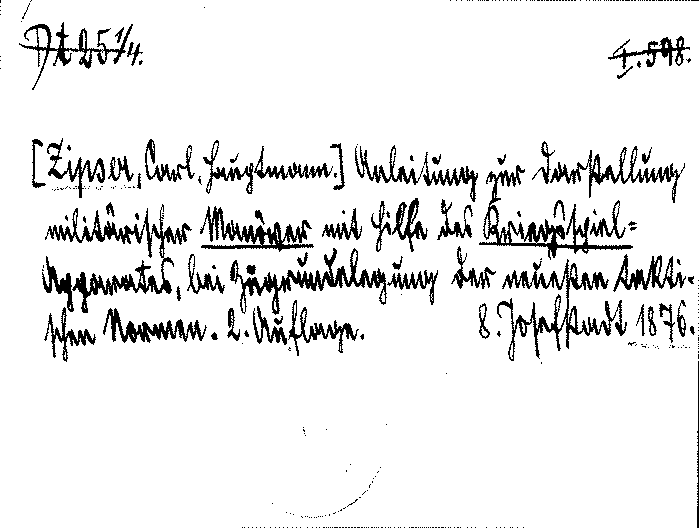 Dt 25 1/4. I. 598.
[Zipser, Carl, Hauptmann.] Anleitung zur Darstellung
militärischer Manöver mit Hilfe des Kriegsspiel=
Apparates, bei Zugrundelegung der neuesten takti-
schen Normen. 2. Auflage. 8. Josefstadt 1876.